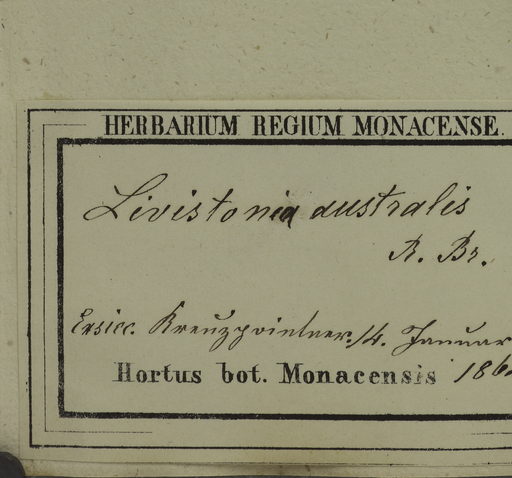 HERBARIUM REGIUM MONACENSE.
Livistonia australis
R. Br.
Exsicc. Kreuzpointner. 14. Januar
Hortus bot. Monacensis